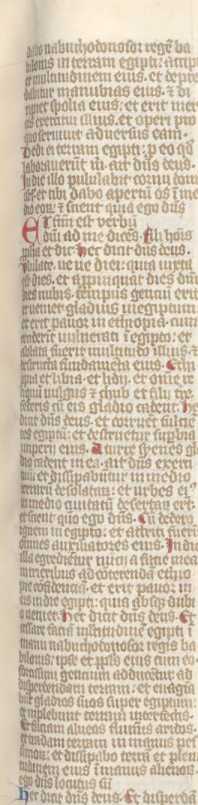 dabo nabuchodonosor regē ba
bilonis in terram egipti: ⁊ accipi
et multitudinem eius. et depre
dabitur manubias eius. ⁊ di
ripiet spolia eius: et erit mer
ces exercitui illius. et operi pro
quo seruiuit aduersus eam.
Dedi ei terram egipti: p eo qd
laborauerūt m̄. ait dn̄s deus.
In die illo pululabit cornu domꝰ
isrl. et tibi dabo apertū os ī me
dio eoꝝ: ⁊ scient quia ego dn̄s
Et factū est verbū
dn̄i ad me dicēs. Fili hoīs
ꝓpheta et dic. hec dicit dn̄s deus.
Vlulate. ve ve diei: quia iuxta
est dies. et appinquat dies dn̄i
dies nubis. tempus genciū erit.
et veniet gladius in egiptum
et erit pauor in ethiopia. cum
ceciderint vulnerati ī egipto: et
ablata fuerit multitudo illius. ⁊
destructa fundamēta eius. Ethi
opia et libia. et lydij. et omne re
liquū vulgus ⁊ chub et filij tre
federis cū eis gladio cadent. he
dicit dn̄s deus. et corruēt fulcie
tes egiptū: et destruetur supbia
imperij eius. A turre syenes gla
dio cadent in ea. ait dn̄s exerci
tuū: et dissipabūtur in medio
terrarū desolataꝝ: et urbes eiꝰ
in medio ciuitatū desertaꝝ erūt.
et scient quia ego dn̄s. Cū dedero
ignem in egipto: et attriti fueri
omnes auxiliatores eius. In die
illa egredientur nūcij a facie mea
in trieribus ad cōterendā ethio
pie cōfidenciā. et erit pauor in
eis in die egipti: quia absqꝫ dubio
veniet. hec dicit dn̄s deus. Et
cessare faciā multitudinē egipti ī
manu nabuchodonosor regis ba
bilonis. ipse et ppls̄ eius cum eo
fortissimi gencium adducētur ad
disperdendam terram: et euagīa
būt gladios suos super egiptum:
et implebunt terram interfectis.
Et faciam alueos fluminū aridos.
et tradam terram in manus pes
simoꝝ: et dissipabo terrā et pleni
tudinem eius ī manus alienoꝝ.
ego dn̄s locutus sū
Hec dicit dn̄s deus. Et disperdā